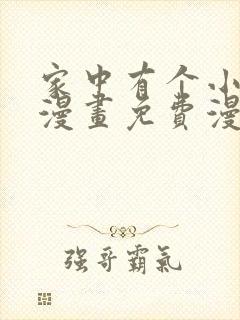 家中有个小
漫畫免費漫
强哥霸氣